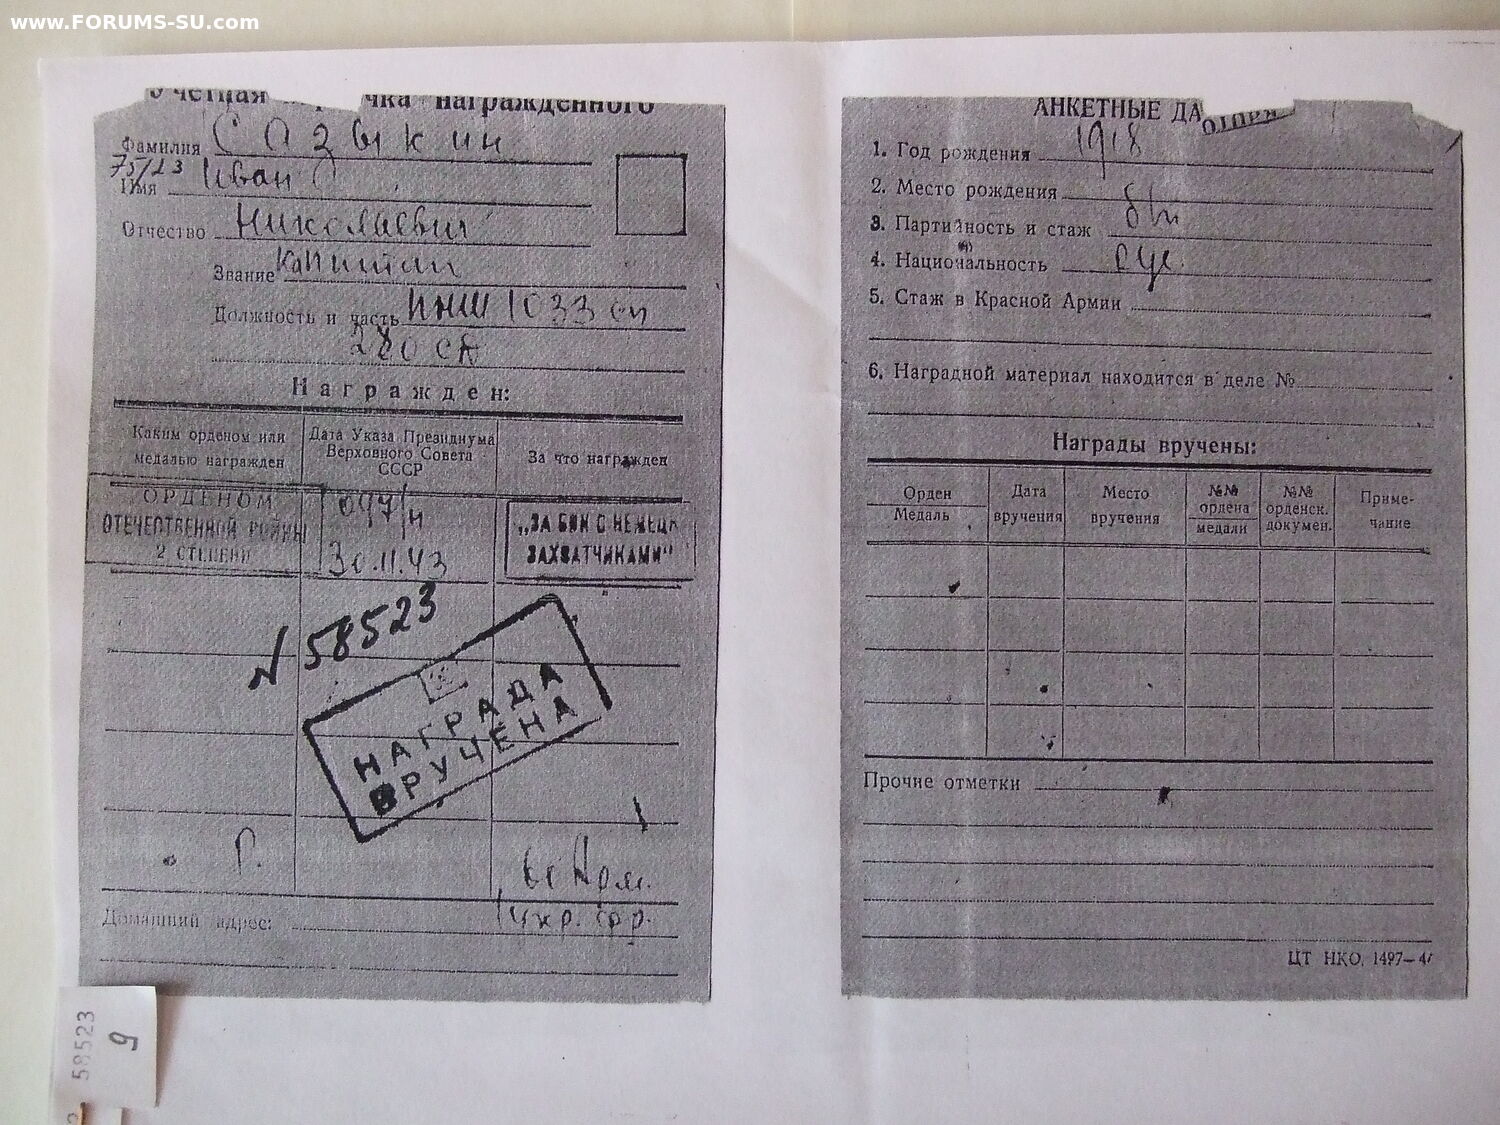 www.FORUMS-SU.com
Учетная карточка награжденного
Фамилия Сазыкин
75/23
Имя Иван
Отчество Николаевич
Звание Капитан
Должность и часть ПНШ 1033 сп
280 сд
Награжден:
Каким орденом или медалью награжден
Дата Указа Президиума Верховного Совета СССР
За что награжден
ОРДЕНОМ ОТЕЧЕСТВЕННОЙ ВОЙНЫ 2 СТЕПЕНИ
097/н 30.11.43
„ЗА БОИ С НЕМЕЦК ЗАХВАТЧИКАМИ"
N 58523
НАГРАДА
ВРУЧЕНА
Г.
60 Арм.
1 укр. фр.
Домашний адрес:
58523
9
АНКЕТНЫЕ ДА
1. Год рождения 1918
2. Место рождения
3. Партийность и стаж б/п
4. Национальность рус.
5. Стаж в Красной Армии
6. Наградной материал находится в деле №
Награды вручены:
Орден
Медаль
Дата вручения
Место вручения
№№ ордена
медали
№№ орденск. докумен.
Приме-
чание
Прочие отметки
ЦТ НКО, 1497—4